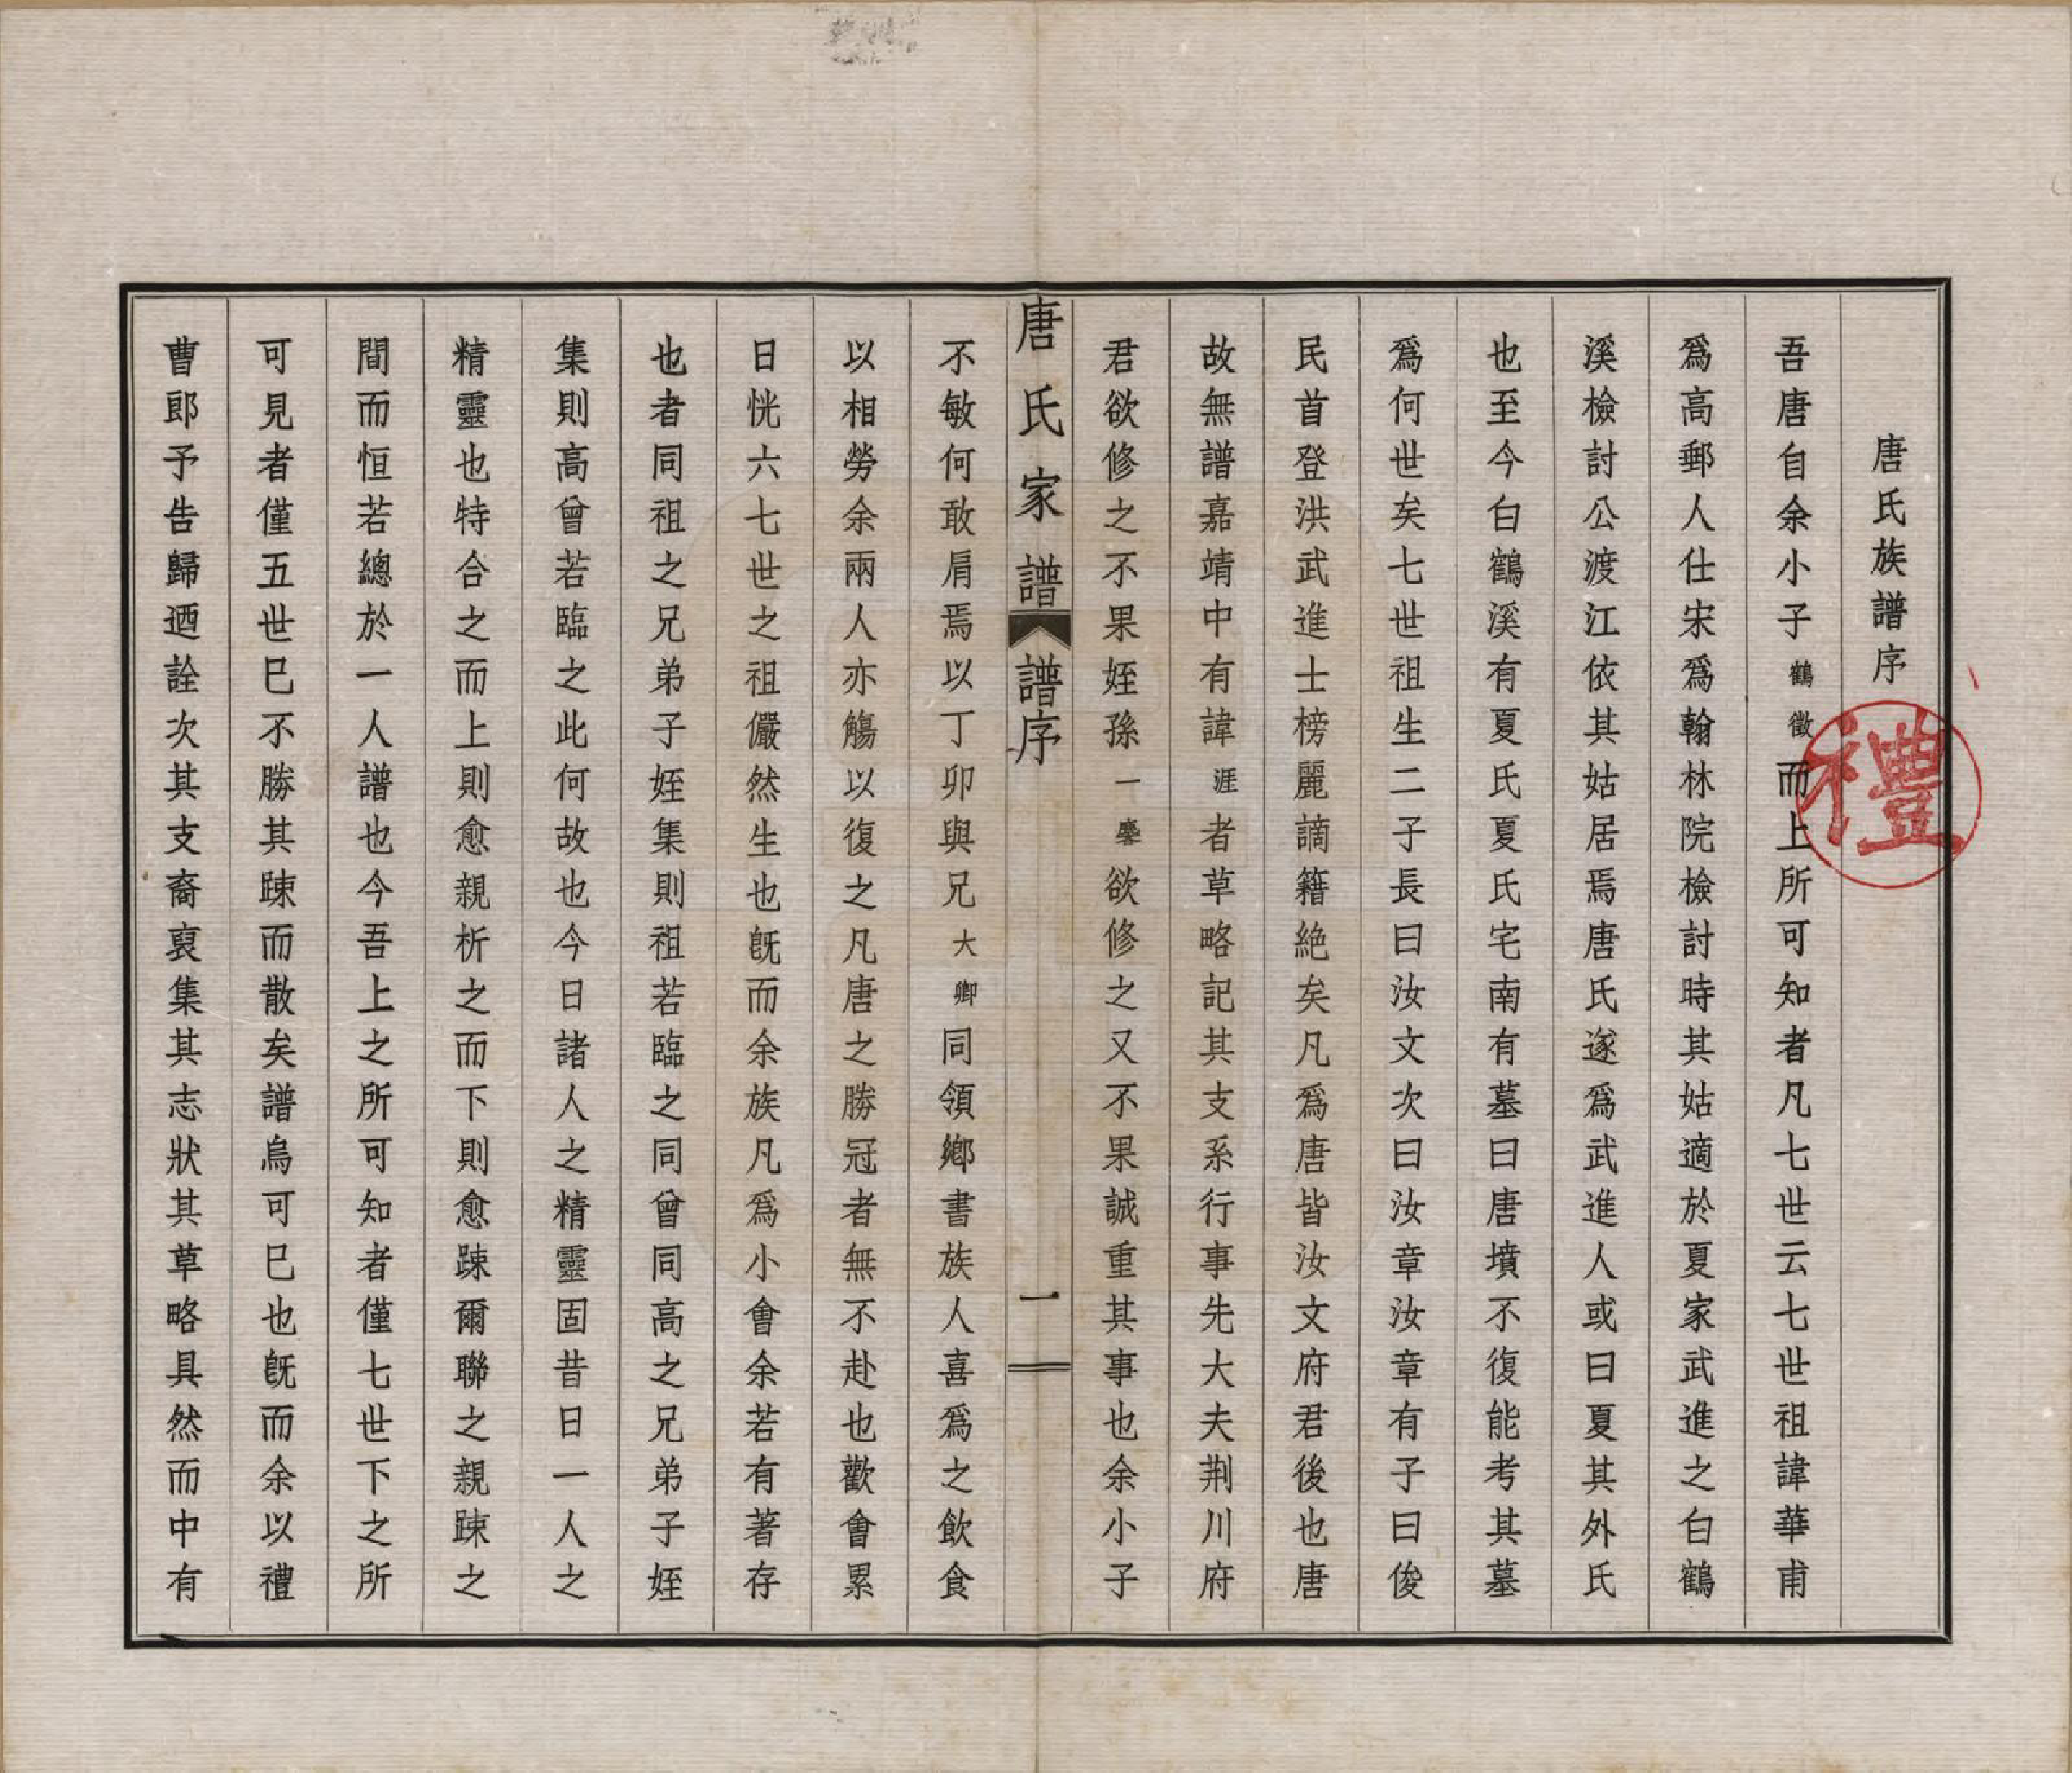 唐氏族譜序
吾唐自余小子鶴徵而上所可知者凡七世云七世祖諱華甫
爲高郵人仕宋爲翰林院檢討時其姑適於夏家武進之白鶴
溪檢討公渡江依其姑居焉唐氏遂爲武進人或曰夏其外氏
也至今白鶴溪有夏氏夏氏宅南有墓曰唐墳不復能考其墓
爲何世矣七世祖生二子長曰汝文次曰汝章汝章有子曰俊
民首登洪武進士榜麗謫籍絶矣凡爲唐皆汝文府君後也唐
故無譜嘉靖中有諱涯者草略記其支系行事先大夫荆川府
君欲修之不果姪孫一麐欲修之又不果誠重其事也余小子
唐氏家譜 譜序 一
不敏何敢肩焉以丁卯與兄大卿同領鄉書族人喜爲之飲食
以相勞余兩人亦觴以復之凡唐之勝冠者無不赴也歡會累
日恍六七世之祖儼然生也旣而余族凡爲小會余若有著存
也者同祖之兄弟子姪集則祖若臨之同曾同高之兄弟子姪
集則高曾若臨之此何故也今日諸人之精靈固昔日一人之
精靈也特合之而上則愈親析之而下則愈踈爾聯之親踈之
間而恒若總於一人譜也今吾上之所可知者僅七世下之所
可見者僅五世巳不勝其踈而散矣譜烏可巳也旣而余以禮
曹郎予告歸迺詮次其支裔裒集其志狀其草略具然而中有
禮